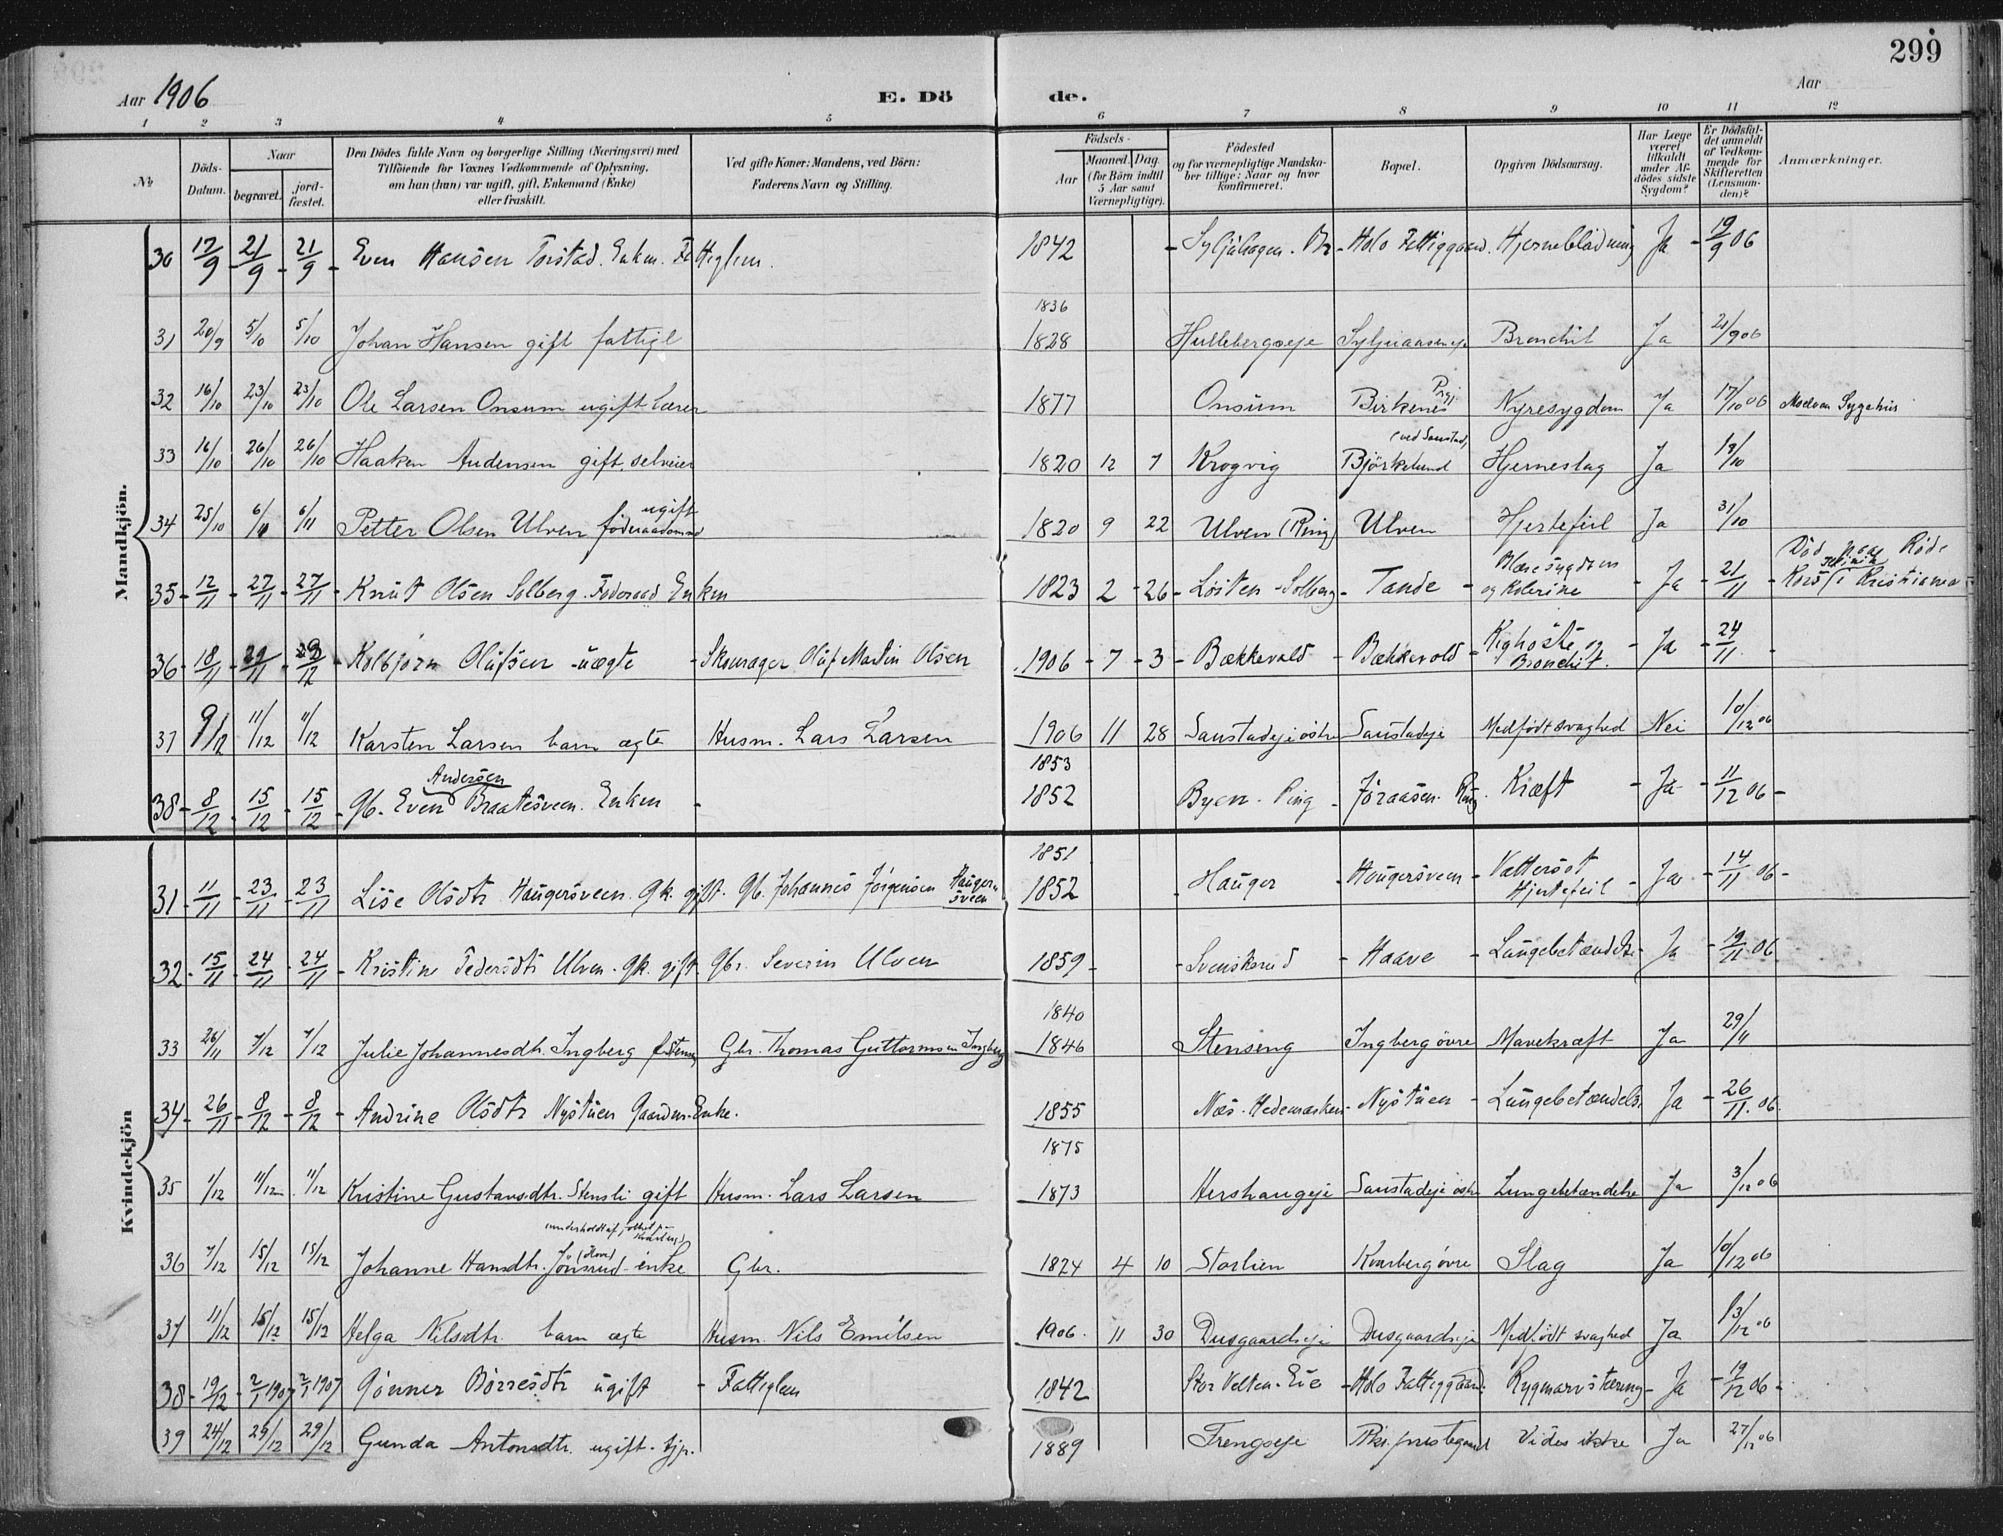 299
Aar 1906 E. Dö de. Aar
1 2 3 4 5 6 7 8 9 10 11 12
№ Döds-Datum. Naar begravet. jord-fæstet. Den Dödes fulde Navn og borgerlige Stilling (Næringsvei) med Tilföiende for Voxnes Vedkommende af Oplysning, om han (hun) var ugift, gift, Enkemand (Enke) eller fraskilt. Ved gifte Koner: Mandens, ved Börn: Faderens Navn og Stilling. Födsels- Aar Maaned. Dag. (for Börn indtil 5 Aar samt Værnepligtige). Födested og for værnepligtige Mandskaber tillige: Naar og hvor konfirmeret. Bopæl. Opgiven Dödsaarsag. Har Læge været tilkaldt under Afdödes sidste Sygdom? Er Dödsfaldet anmeldt af Vedkommende for Skifteretten (Lensmanden)? Anmærkninger.
Mandkjön.
30 17/9 21/9 21/9 Even Hansen Torstad. Enkem. Heglem. 1842 Holo Fattiggaard. Hjerneblödning Ja 19/9 06
1836
31 20/9 5/10 5/10 Johan Hansen gift fattigl 1828 Hullebergseje Bronchit Ja 21/9 06
32 16/10 23/10 23/10 Ole Larsen Onsum ugift Lærer 1877 Onsum Birkenes Prgj Nyresygdom Ja 17/10 06 Moelven Sygehus
33 16/10 26/10 26/10 Haaken Andersen gift, selveier 1820 12 7 Krogvig Björkelund (ved Saustad) Hjerneslag Ja 19/10
34 25/10 6/11 6/11 Petter Olsen Ulven ugift föderaadsmand 1820 9 22 Ulven (Ring) Ulven Hjertefeil Ja 31/10
35 12/11 27/11 27/11 Knut Olsen Solberg. Föderaad Enkem 1823 2 26 Löiten - Solberg Tande Blæresygdom og Kolerine Ja 21/11 Död paa Röde Kors i Kristiania
36 18/11 29/11 Kolbjörn Olufsen uægte Skomager Oluf Martin Olsen 1906 7 3 Bækkevold Bækkevold Kighoste og Bronchit. Ja 24/11
37 9/12 11/12 11/12 Karsten Larsen barn ægte Husm. Lars Larsen 1906 11 28 Saustadeje östre Saustadeje Medfödt svaghed Nei 10/12 06
1853
38 8/12 15/12 15/12 Gb. Even Andersen Braatesveen. Enkem 1852 Byen. Ring Jöraasen. Ring Kræft Ja 11/12 06
Kvindekjön
1851
31 11/11 23/11 23/11 Lise Olsdtr Haugersveen. Gk. gift. Gb. Johannes Jörgensen Haugersveen 1852 Hauger Haugersveen Vattersot Hjertefeil Ja 14/11 06
32 15/11 24/11 24/11 Kristine Pedersdtr Ulven. Gk. gift Gbr. Severin Ulven 1859 Svenskerud Haave Lungebetændelse Ja 19/11 06
1840
33 26/11 7/12 7/12 Julie Johannesdtr. Ingberg f. Stenseng Gbr. Thomas Guttormsen Ingberg 1846 Stenseng Ingberg övre Mavekræft Ja 29/11
34 26/11 8/12 8/12 Andrine Olsdtr Nystuen Gaardm. Enke. 1855 Næs. Hedemarken Nystuen Lungebetændelse Ja 26/11 06.
1875
35 1/12 11/12 11/12 Kristine Gustavsdtr. Stensli gift Husm. Lars Larsen 1873 Hershaugeje Saustadeje östre Lungebetændelse Ja 3/12 06
36 7/12 15/12 15/12 Johanne Hansdtr. Jönsrud (Hove) enke Gbr. 1824 4 10 Storlien Kvarberg övre Slag Ja 10/12 06
37 11/12 15/12 15/12 Helga Nilsdtr. barn ægte Husm. Nils Emilsen 1906. 11 30 Dusgaardseje Dusgaardseje Medfödt svaghed Ja 13/12 06
38 19/12 2/1 1907 2/1 1907 Gönner Börresdtr ugift Fattiglem 1842 Stor Velten. Eie Holo Fattiggaard. Rygmarvstæring Ja 19/12 06
39 24/12 29/12 29/12 Gunda Antonsdtr. ugift tjp. 1889 Trengseje Rks. prestegaard Vides ikke Ja 27/12 06